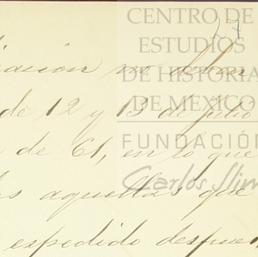 CENTRO DE
27
ESTUDIOS
DE HISTORIA
DE MÉXICO
FUNDACIÓN
Carlos Slim
de 12 y 13 de Julio
de 61, en lo que
aquellas que
expedido despues